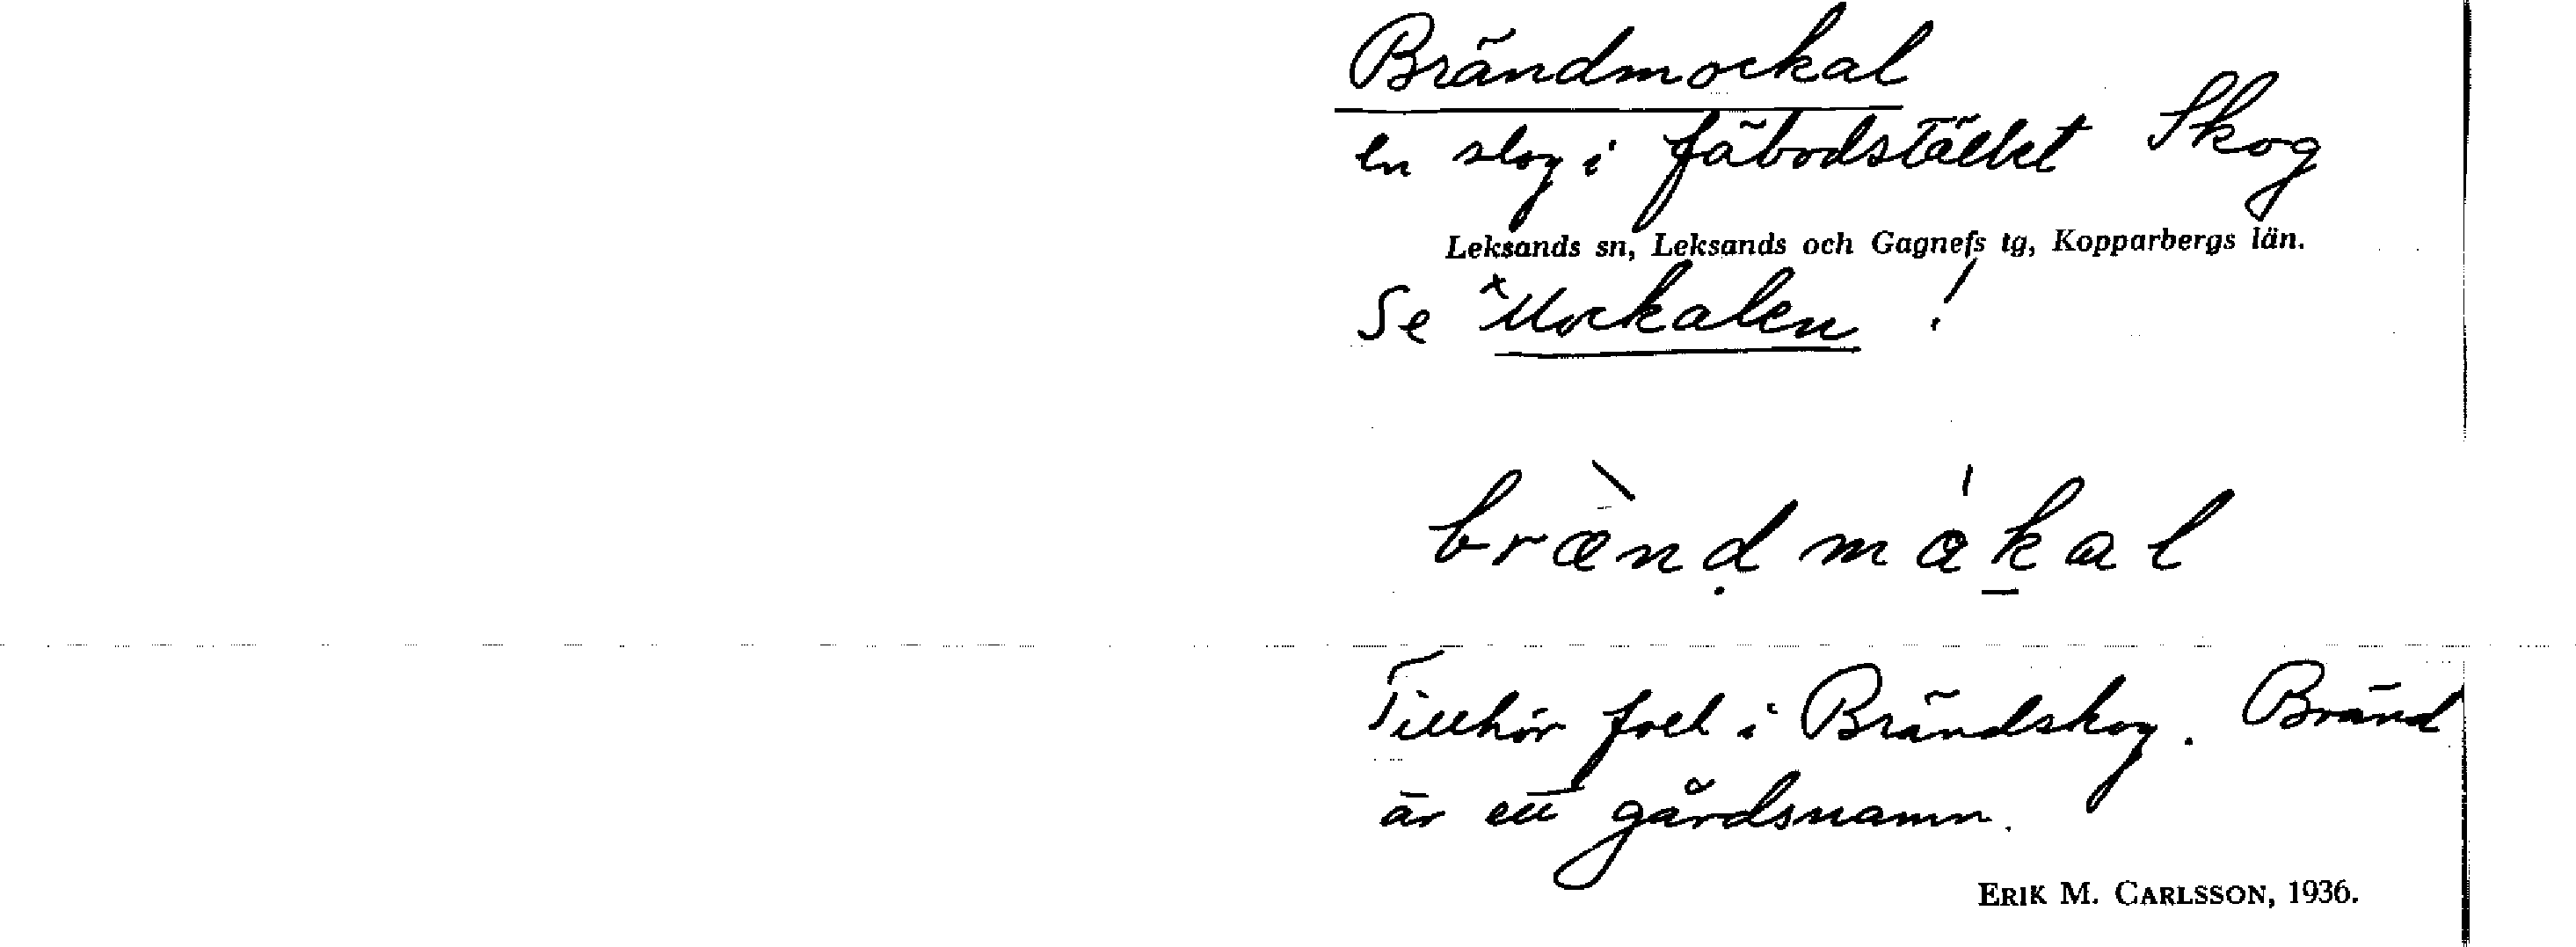 Brändmockal
en slog i fäbodstället Skog
Leksands sn, Leksands och Gagnefs tg, Kopparbergs län.
Se ˣMockalen !
bræ̀nḍmåk̲al
Tillhör folk i Brändskog. Bränd
är ett gårdsnamn.
ERIK M. CARLSSON, 1936.